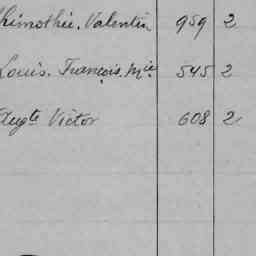 Thimothée. Valentin 959 2
Louis. François. Mie 545 2
Augte Victor 608 2